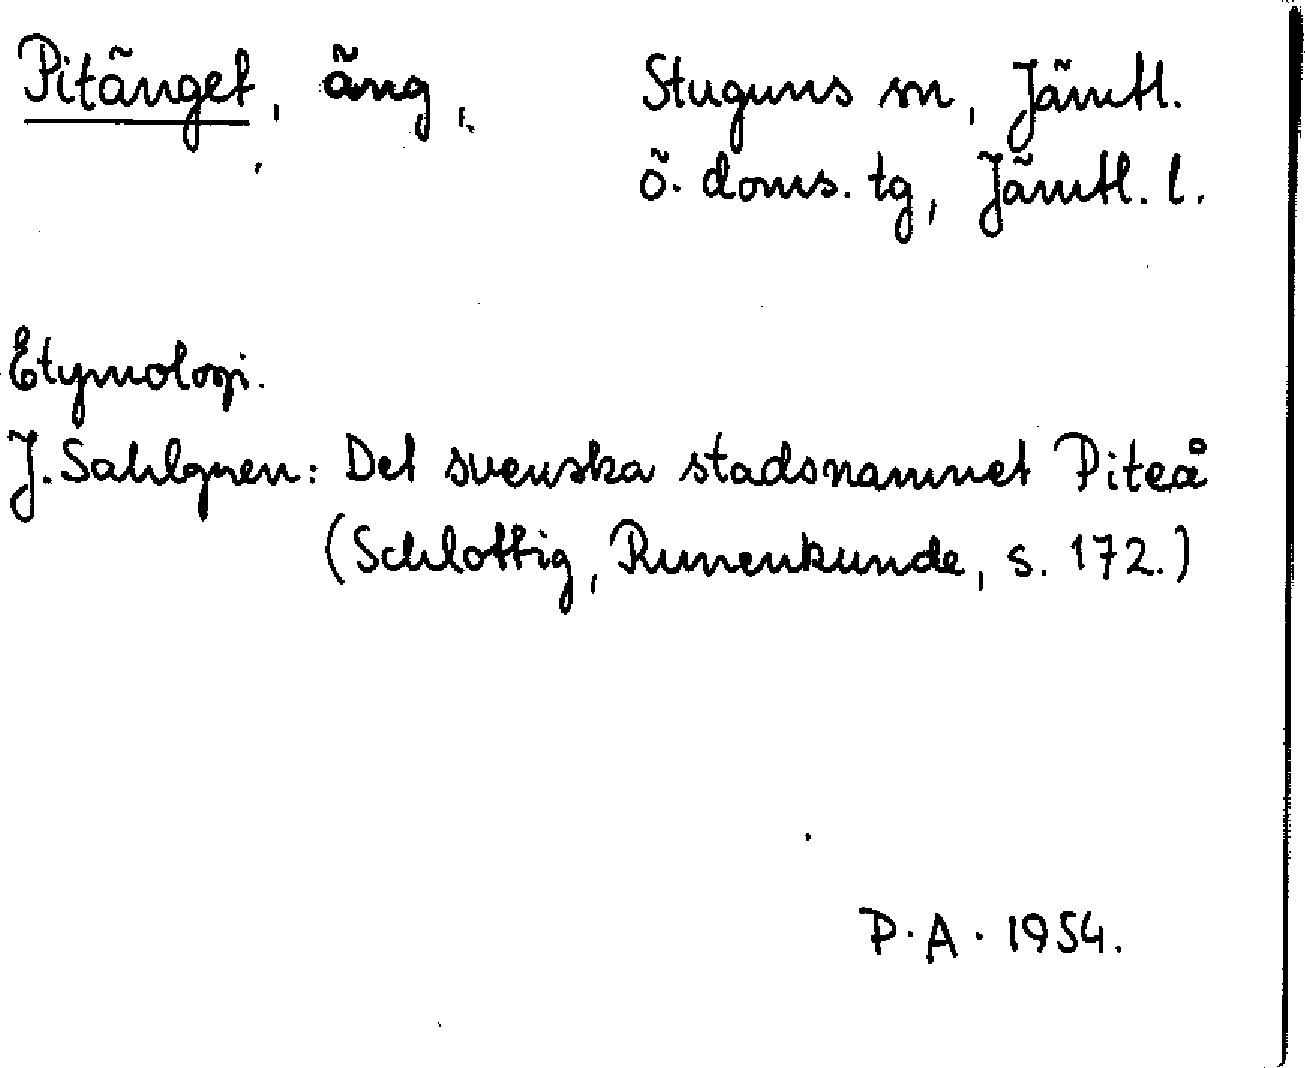 Pitänget, äng, Stuguns sn, Jämtl.
ö. doms. tg, Jämtl. l.
Etymologi.
J. Sahlgren: Det svenska stadsnamnet Piteå
(Schlottig, Runenkunde, s. 172.)
P. A. 1954.